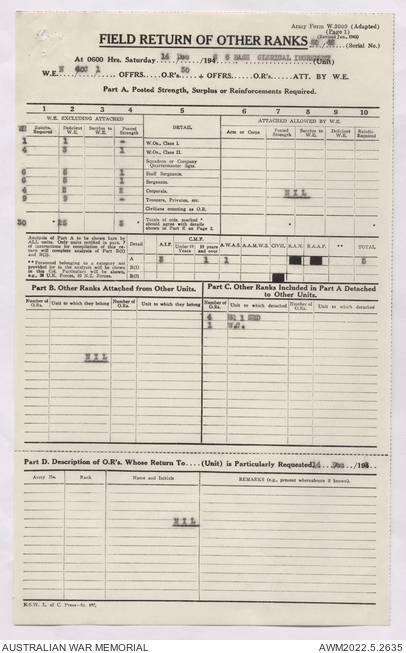 Army Form W.3009 (Adapted)
(Page 1)
(Revised Jun., 1943)
FIELD RETURN OF OTHER RANKS
(Serial No.)
At 0600 Hrs. Saturday 14 Dec /194 6 BASE CLERICAL
W.E. OFFRS. O.R's. 30 + OFFRS. O.R's. ATT. BY W.E.
Part A. Posted Strength, Surplus or Reinforcements Required.
1 2 3 4 5 6 7 8 9 10
W.E. EXCLUDING ATTACHED ATTACHED ALLOWED BY W.E.
Reinfts. Required Deficient W.E. Surplus to W.E. Posted Strength DETAIL Arm or Corps Posted Strength Surplus to W.E. Deficient W.E. Reinfts. Required
1 1 - W.Os., Class I.
4 3 1 W.Os., Class II.
Squadron or Company Quartermaster Sgts.
6 5 1 Staff Sergeants.
6 5 1 Sergeants.
4 2 2 Corporals. NIL
9 9 - Troopers, Privates, etc.
Civilians counting as O.R.
30 * 25 5 * Totals of cols. marked * should agree with details shown in Part E on Page 2.
Analysis of Part A to be shown here by ALL units. Only units notified in para. 7 of instructions for compilation of this return will complete analysis of Part B(1) and B(2).
Detail A.I.F. C.M.F. Under 19 years 19 years and over A.W.A.S. A.A.M.W.S. CIVIL R.A.N. R.A.A.F. ** TOTAL
A 3 1 1 5
B(1)
B(2)
** Personnel belonging to a category not provided for in the analysis will be shown in this Col. Particulars will be shown, e.g., 28 U.K. Forces, 10 N.Z. Forces.
Part B. Other Ranks Attached from Other Units.
Part C. Other Ranks Included in Part A Detached to Other Units.
Number of O.Rs. Unit to which they belong Number of O.Rs. Unit to which they belong Number of O.Rs. Unit to which detached Number of O.Rs. Unit to which detached
4 HQ 1 MD
1
NIL
Part D. Description of O.R's. Whose Return To.....(Unit) is Particularly Requested 14 Dec /194
Army No. Rank Name and Initials REMARKS (e.g., present whereabouts if known).
NIL
N.S.W. L. of C. Press—St. 887.
AUSTRALIAN WAR MEMORIAL AWM2022.5.2635